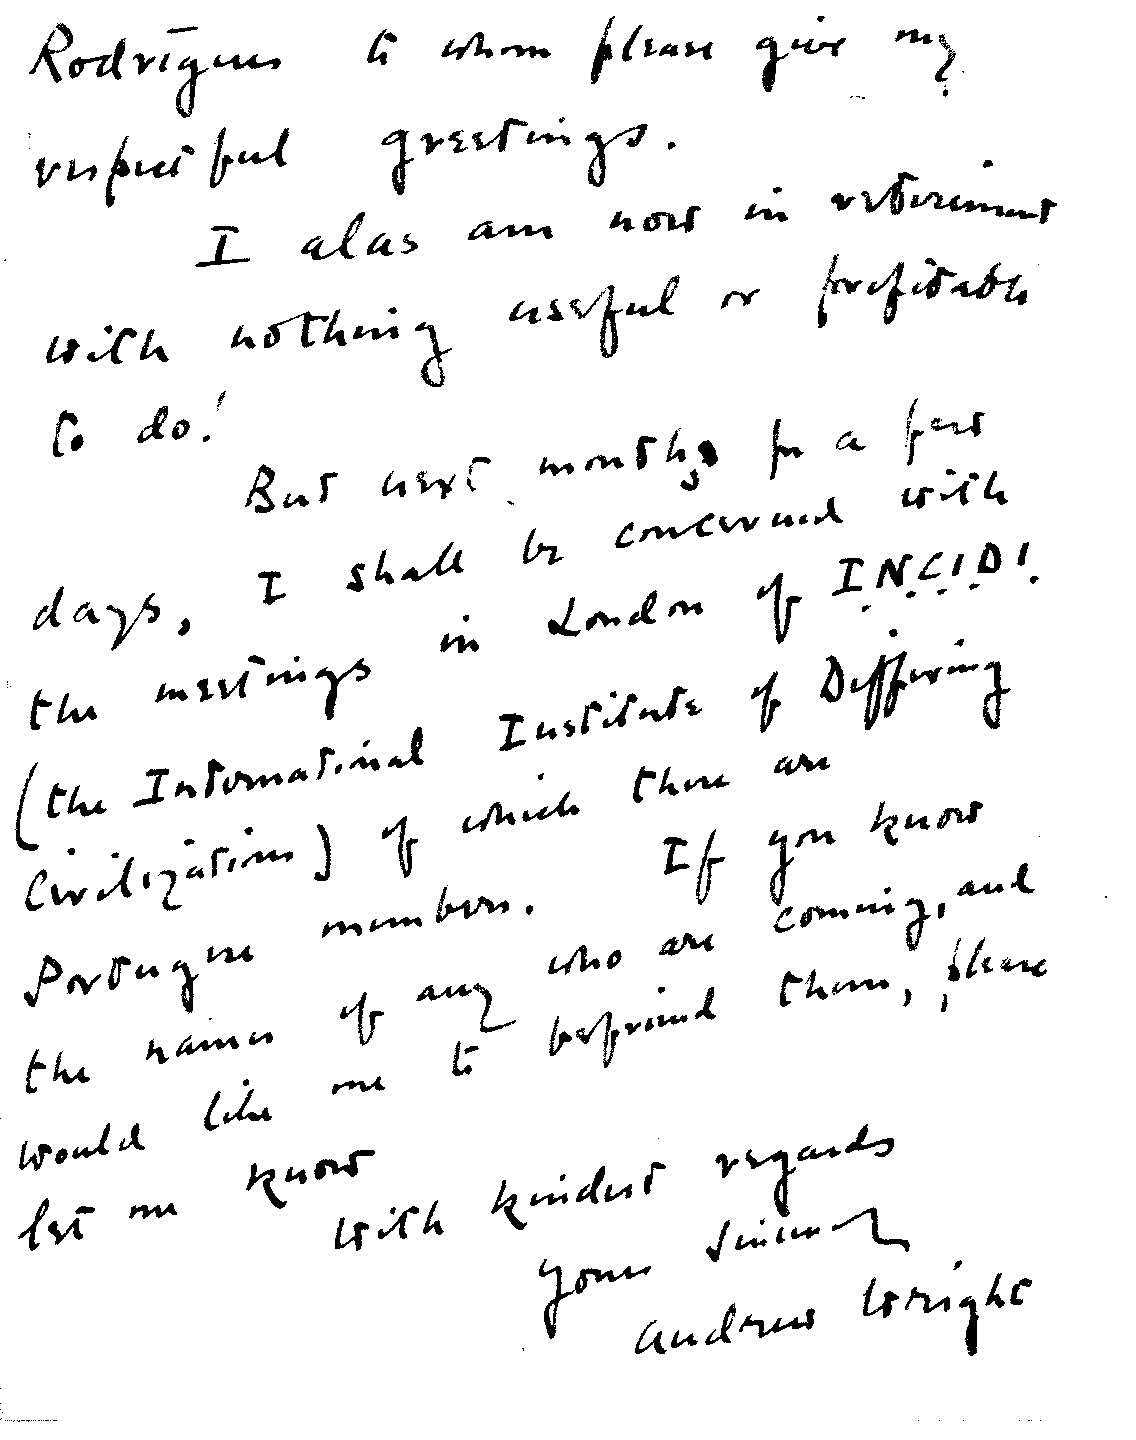 Rodrigues to whom please give my
respectful greetings.
I alas am now in retirement
with nothing useful or profitable
to do!
But next month, for a few
days, I shall be concerned with
the meetings in London of I.N.C.I.D.I.
(the International Institute of Differing
Civilizations) of which there are
Portuguese members. If you know
the names of any who are coming, and
would like me to befriend them, please
let me know
With kindest regards
Yours sincerely
Andrew Wright